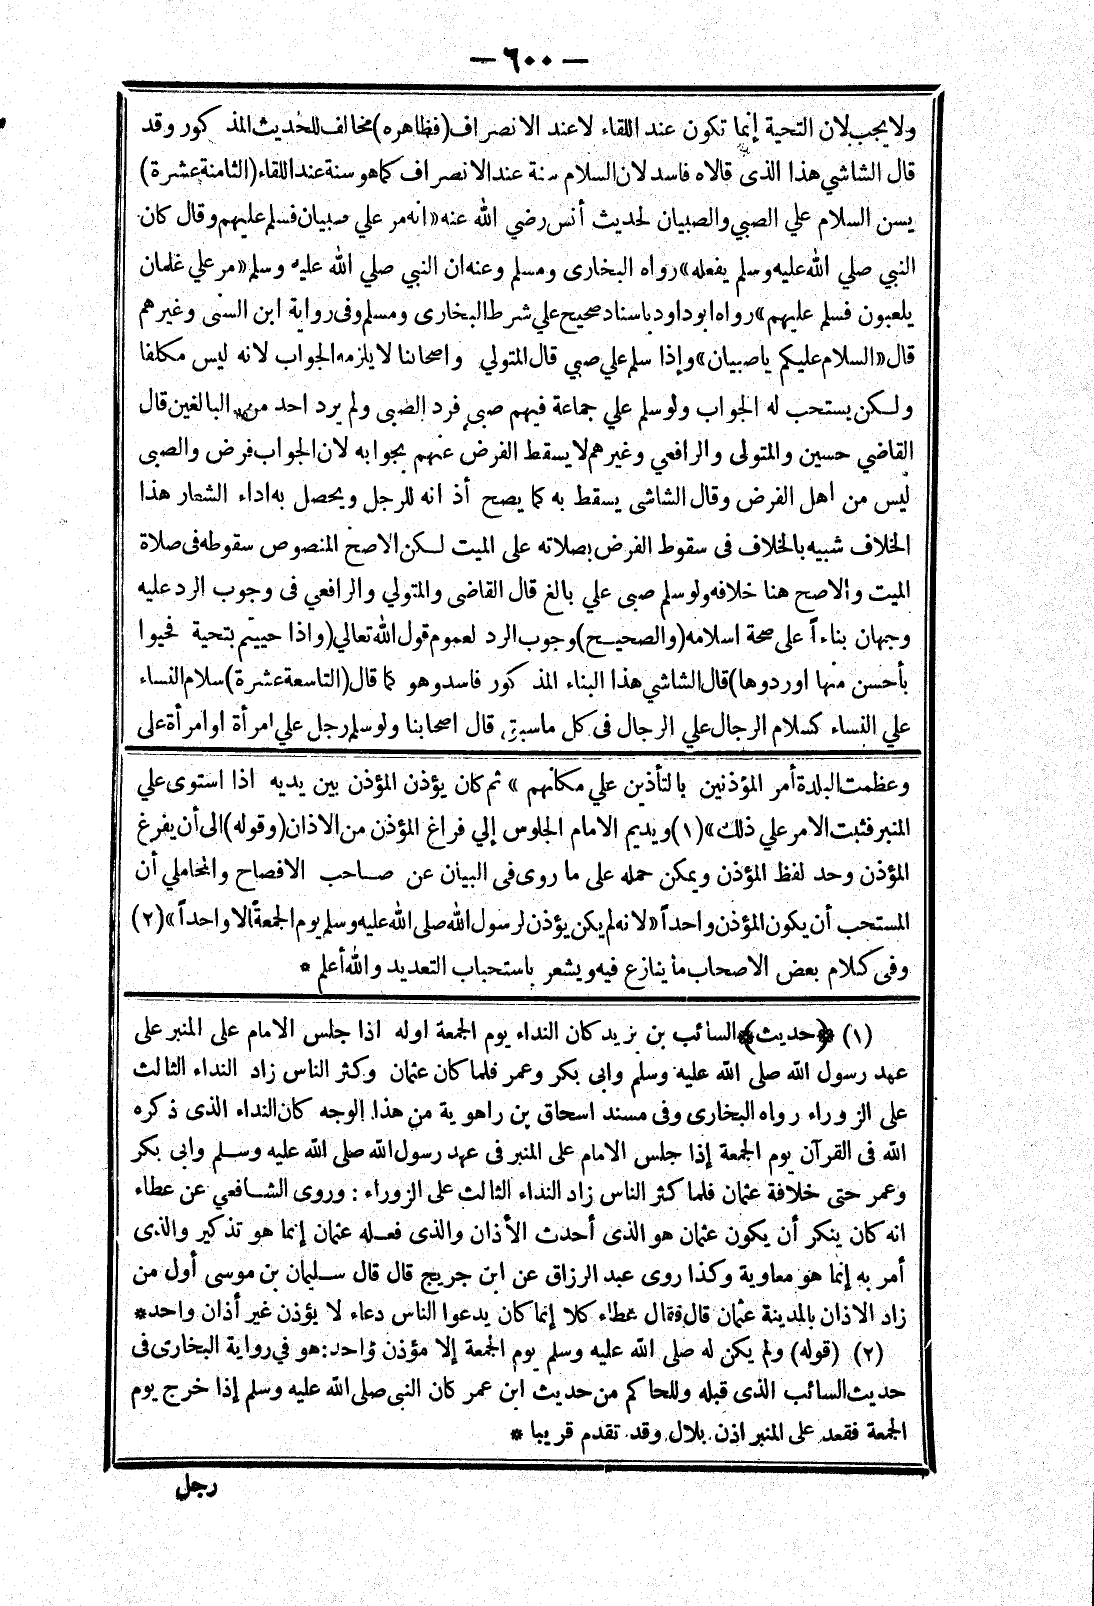 — ٦٠٠ —
ولا يجب لان التحية إنما تكون عند اللقاء لا عند الانصراف (فظاهره) مخالف للحديث المذكور وقد
قال الشاشي هذا الذى قالاه فاسد لان السلام سنة عند الانصراف كما هو سنة عند اللقاء (الثامنة عشرة)
يسن السلام علي الصبي والصبيان لحديث أنس رضي الله عنه «انه مر علي صبيان فسلم عليهم وقال كان
النبي صلي الله عليه وسلم يفعله» رواه البخارى ومسلم وعنه ان النبي صلي الله عليه وسلم «مر علي غلمان
يلعبون فسلم عليهم» رواه ابو داود باسناد صحيح علي شرط البخارى ومسلم وفى رواية ابن السنى وغيرهم
قال «السلام عليكم ياصبيان» وإذا سلم علي صبي قال المتولي واصحابنا لا يلزمه الجواب لانه ليس مكلفا
ولكن يستحب له الجواب ولو سلم علي جماعة فيهم صبى فرد الصبى ولم يرد احد من البالغين قال
القاضي حسين والمتولى والرافعي وغيرهم لا يسقط الفرض عنهم بجوابه لان الجواب فرض والصبى
ليس من اهل الفرض وقال الشاشى يسقط به كما يصح أذ انه للرجل ويحصل به اداء الشعار هذا
الخلاف شبيه بالخلاف فى سقوط الفرض بصلاته على الميت لكن الاصح المنصوص سقوطه فى صلاة
الميت والاصح هنا خلافه ولو سلم صبى علي بالغ قال القاضى والمتولي والرافعي فى وجوب الرد عليه
وجهان بناءاً على صحة اسلامه (والصحيح) وجوب الرد لعموم قول الله تعالي (واذا حييتم بتحية فحيوا
بأحسن منها اوردوها) قال الشاشي هذا البناء المذكور فاسد وهو كما قال (التاسعة عشرة) سلام النساء
علي النساء كسلام الرجال علي الرجال فى كل ماسبق قال اصحابنا ولو سلم رجل علي امرأة او امرأة على
وعظمت البلدة أمر المؤذنين بالتأذين علي مكانهم» ثم كان يؤذن المؤذن بين يديه اذا استوى علي
المنبر فثبت الامر علي ذلك» (١) ويديم الامام الجلوس إلي فراغ المؤذن من الاذان (وقوله) الى أن يفرغ
المؤذن وحد لفظ المؤذن ويمكن حمله على ما روى فى البيان عن صاحب الافصاح والمحاملي أن
المستحب أن يكون المؤذن واحداً «لانه لم يكن يؤذن لرسول الله صلى الله عليه وسلم يوم الجمعة الا واحداً» (٢)
وفى كلام بعض الاصحاب ما ينازع فيه ويشعر باستحباب التعديد والله أعلم *
(١) ﴿حديث﴾ السائب بن يزيد كان النداء يوم الجمعة اوله اذا جلس الامام على المنبر على
عهد رسول الله صلى الله عليه وسلم وابى بكر وعمر فلما كان عثمان وكثر الناس زاد النداء الثالث
على الزوراء رواه البخارى وفى مسند اسحاق بن راهوية من هذا الوجه كان النداء الذى ذكره
الله فى القرآن يوم الجمعة إذا جلس الامام على المنبر فى عهد رسول الله صلى الله عليه وسلم وابى بكر
وعمر حتى خلافة عثمان فلما كثر الناس زاد النداء الثالث على الزوراء : وروى الشافعي عن عطاء
انه كان ينكر أن يكون عثمان هو الذى أحدث الأذان والذى فعله عثمان إنما هو تذكير والذى
أمر به إنما هو معاوية وكذا روى عبد الرزاق عن ابن جريج قال قال سليمان بن موسى أول من
زاد الاذان بالمدينة عثمان قال فقال عطاء كلا إنما كان يدعوا الناس دعاء لا يؤذن غير أذان واحد *
(٢) (قوله) ولم يكن له صلى الله عليه وسلم يوم الجمعة إلا مؤذن واحد: هو في رواية البخارى فى
حديث السائب الذى قبله وللحاكم من حديث ابن عمر كان النبى صلى الله عليه وسلم إذا خرج يوم
الجمعة فقعد على المنبر اذن بلال وقد تقدم قريبا *
رجل